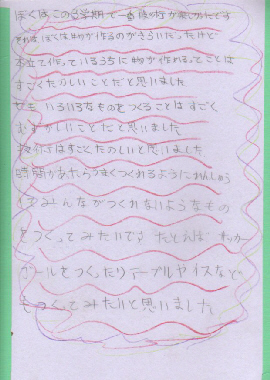 ぼくはこの2学期で一番 が楽しかったです
ぼくは物が作るのがきらいだったけど
本立て作っているうちに物が作れるってことは
すごくたのしいことだと思いました
いろいろなものをつくることはすごく
むずかしいことだと思いました
はすごくたのしいと思いました
時間があれたらうまくつくれるように れんしゅう
みんながつくれないようなもの
をつくってみたいです たとえば サッカー
ゴールをつくったりテーブルやイスなど
をつくってみたいと思いました